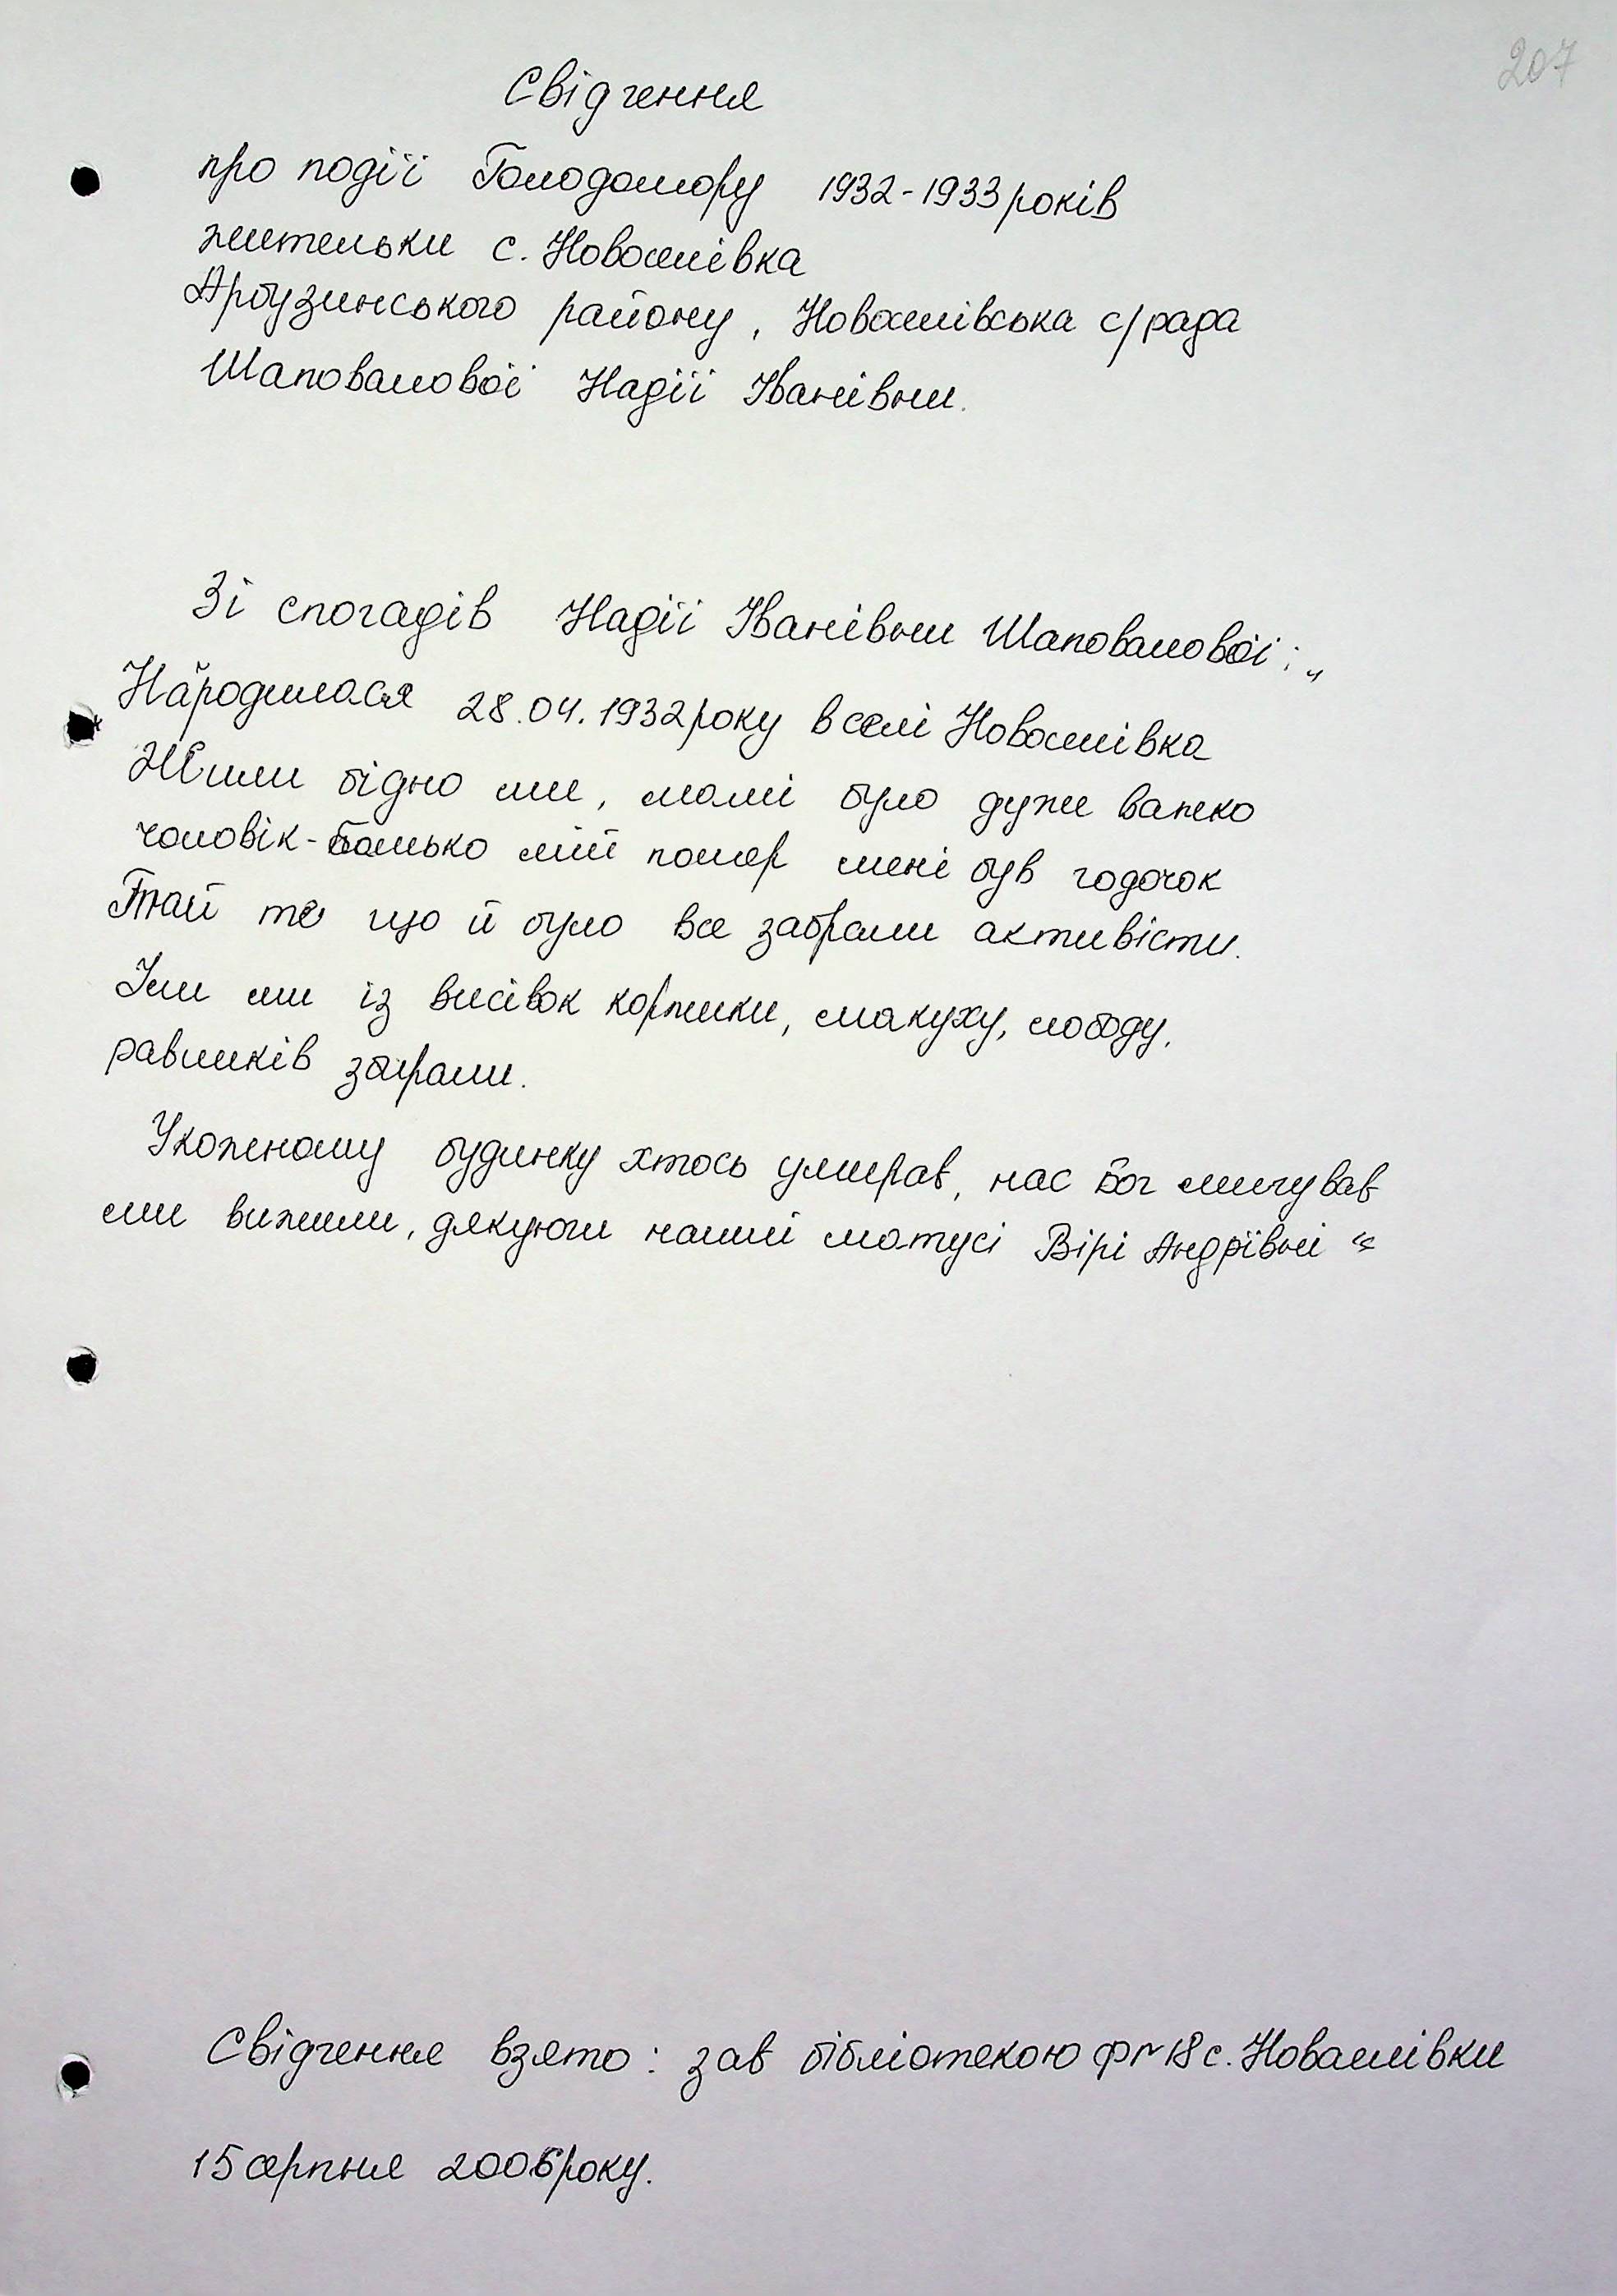 207
Свідчення
про події Голодомору 1932-1933 років
жительки с. Новоселівка
Арбузинського району, Новоселівська с/рада
Шаповалової Надії Іванівни.
Зі спогадів Надії Іванівни Шаповалової: „
Народилася 28.04.1932 року в селі Новоселівка
Жили бідно ми, мамі було дуже важко
чоловік-батько мій помер мені був годочок
Тай те що й було все забрали активісти.
Їли ми із висівок коржики, макуху, лободу,
равликів збирали.
У кожному будинку хтось умирав, нас Бог милував
ми вижили, дякуючи нашій матусі Вірі Андріївні “
Свідчення взято: зав бібліотекою ф№18 с. Новоселівки
15 серпня 2006 року.